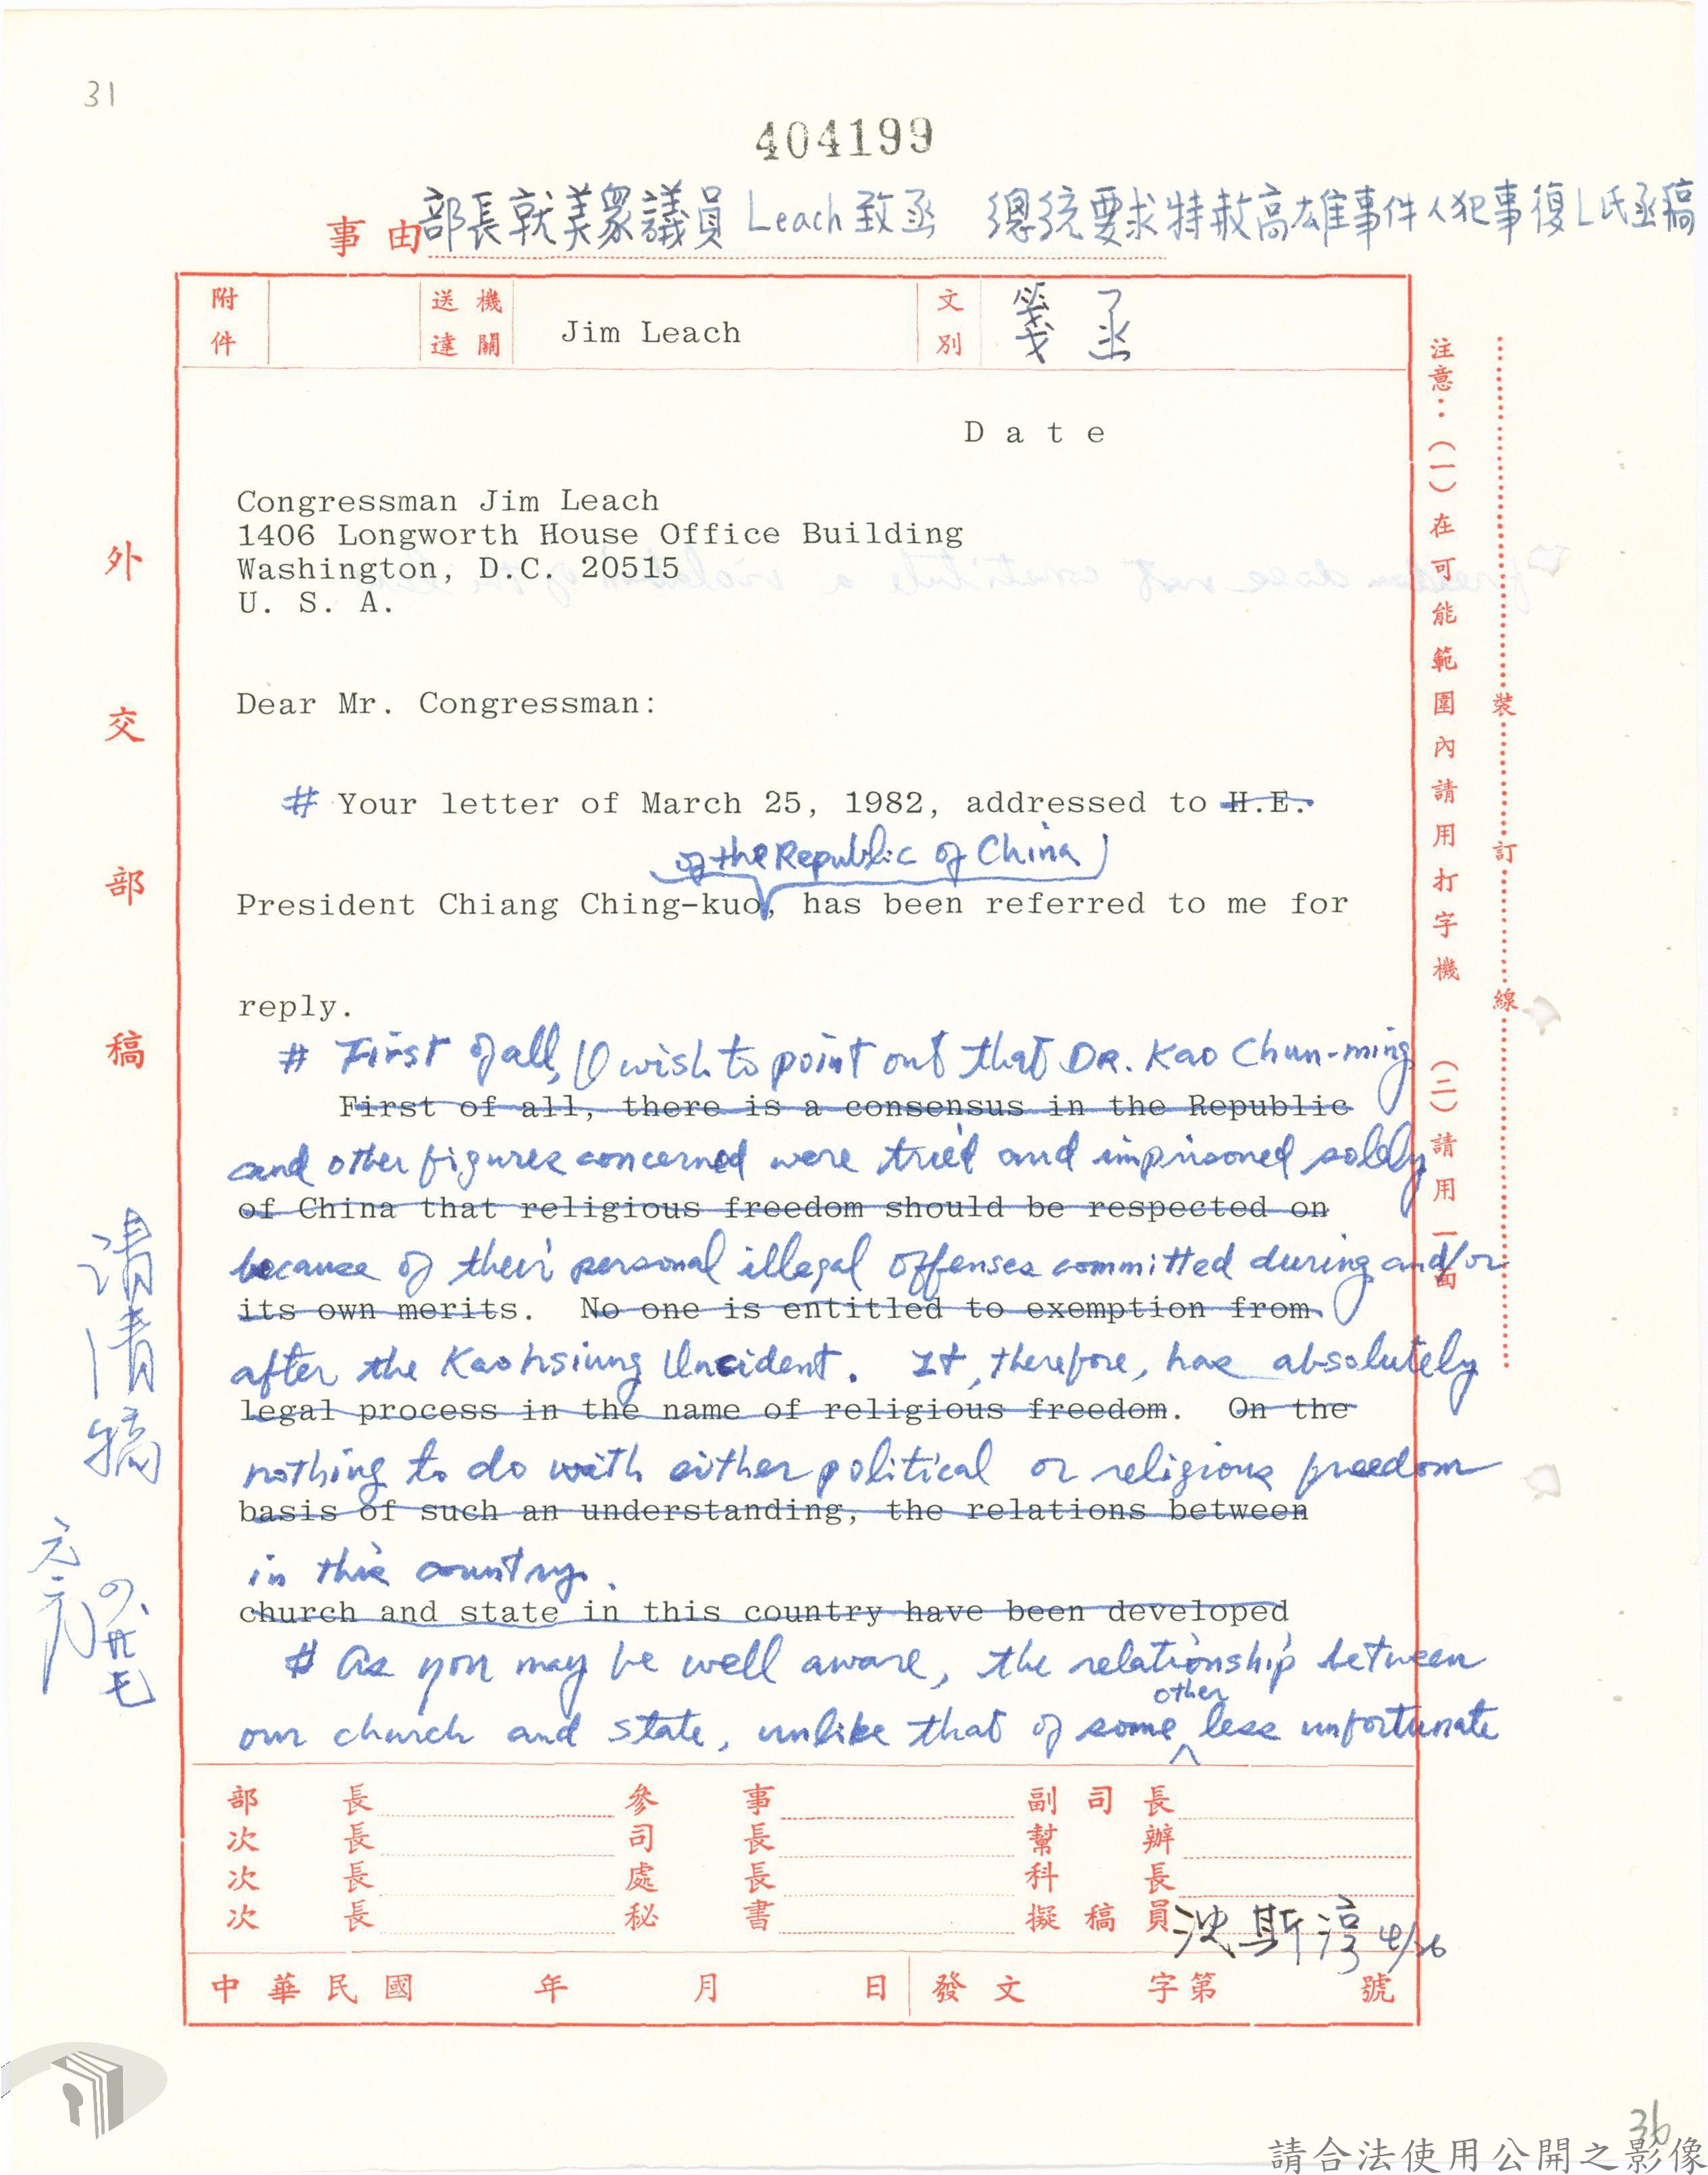 31
404199
事由 部長就美眾議員 Leach 致函 總統要求特赦高雄事件人犯事復L氏函稿
附件 送達機關 Jim Leach 文別 箋函
D a t e
Congressman Jim Leach
1406 Longworth House Office Building
Washington, D.C. 20515
U. S. A.
Dear Mr. Congressman:
# Your letter of March 25, 1982, addressed to H.E.
of the Republic of China
President Chiang Ching-kuo, has been referred to me for
reply.
# First of all, I wish to point out that DR. Kao Chun-ming
First of all, there is a consensus in the Republic
and other figures concerned were tried and imprisoned solely
of China that religious freedom should be respected on
because of their personal illegal offenses committed during and/or
its own merits. No one is entitled to exemption from
after the Kaohsiung Incident. It, therefore, has absolutely
legal process in the name of religious freedom. On the
nothing to do with either political or religious freedom
basis of such an understanding, the relations between
in this country.
church and state in this country have been developed
# As you may be well aware, the relationship between
other
our church and state, unlike that of some less unfortunate
部長 參事 副司長
次長 司長 幫辦
次長 處長 科長
次長 秘書 擬稿員 斯淳 4/26
中華民國 年 月 日 發文 字第 號
外交部稿
請清稿
注意：（一）在可能範圍內請用打字機 （二）請用一面
裝訂線
36
請合法使用公開之影像